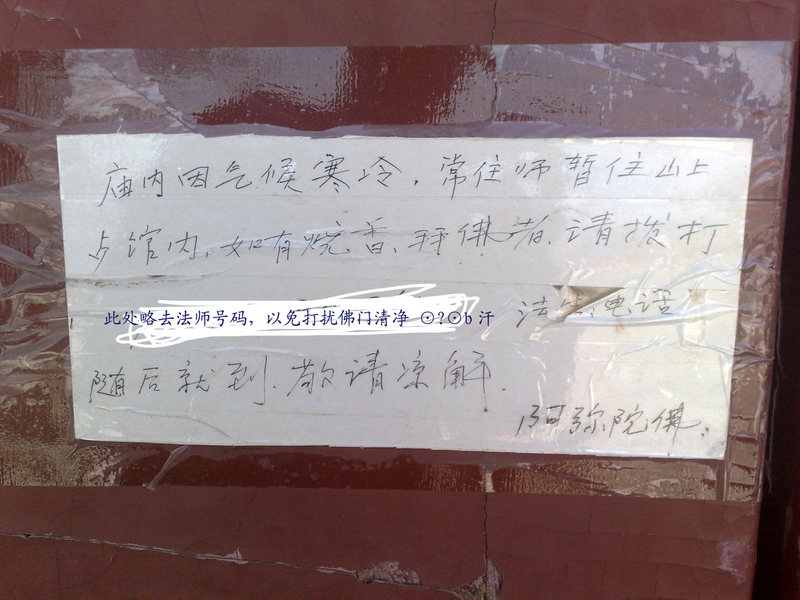 庙内因气候寒冷，常住师暂住山上
馆内，如有烧香、拜佛者，请拨打
此处略去法师号码，以免打扰佛门清净 ⊙?⊙b 汗 法 电话
随后就到．敬请凉解．
阿弥院佛．